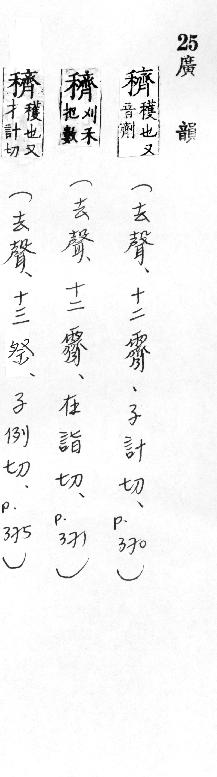 25廣韻
穧 穫也又音劑(去聲、十二霽、子計切、p.370)
穧 刈禾把數(去聲、十二霽、在詣切、p.371)
穧 穫也又才計切(去聲、十三祭、子例切、p.375)